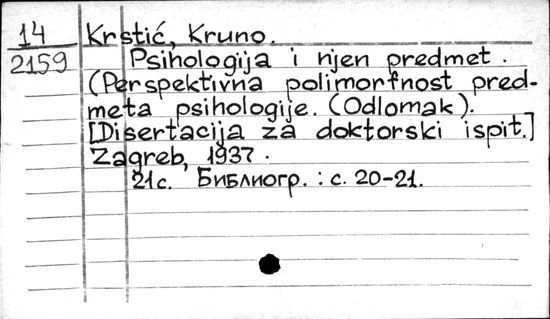 14 Krstić, Kruno.
2159 Psihologija i njen predmet.
(Perspektivna polimorfnost pred-
meta psihologije. (Odlomak).
[Disertacija za doktorski ispit.]
Zagreb, 1937.
21с. Библиогр.: с. 20-21.